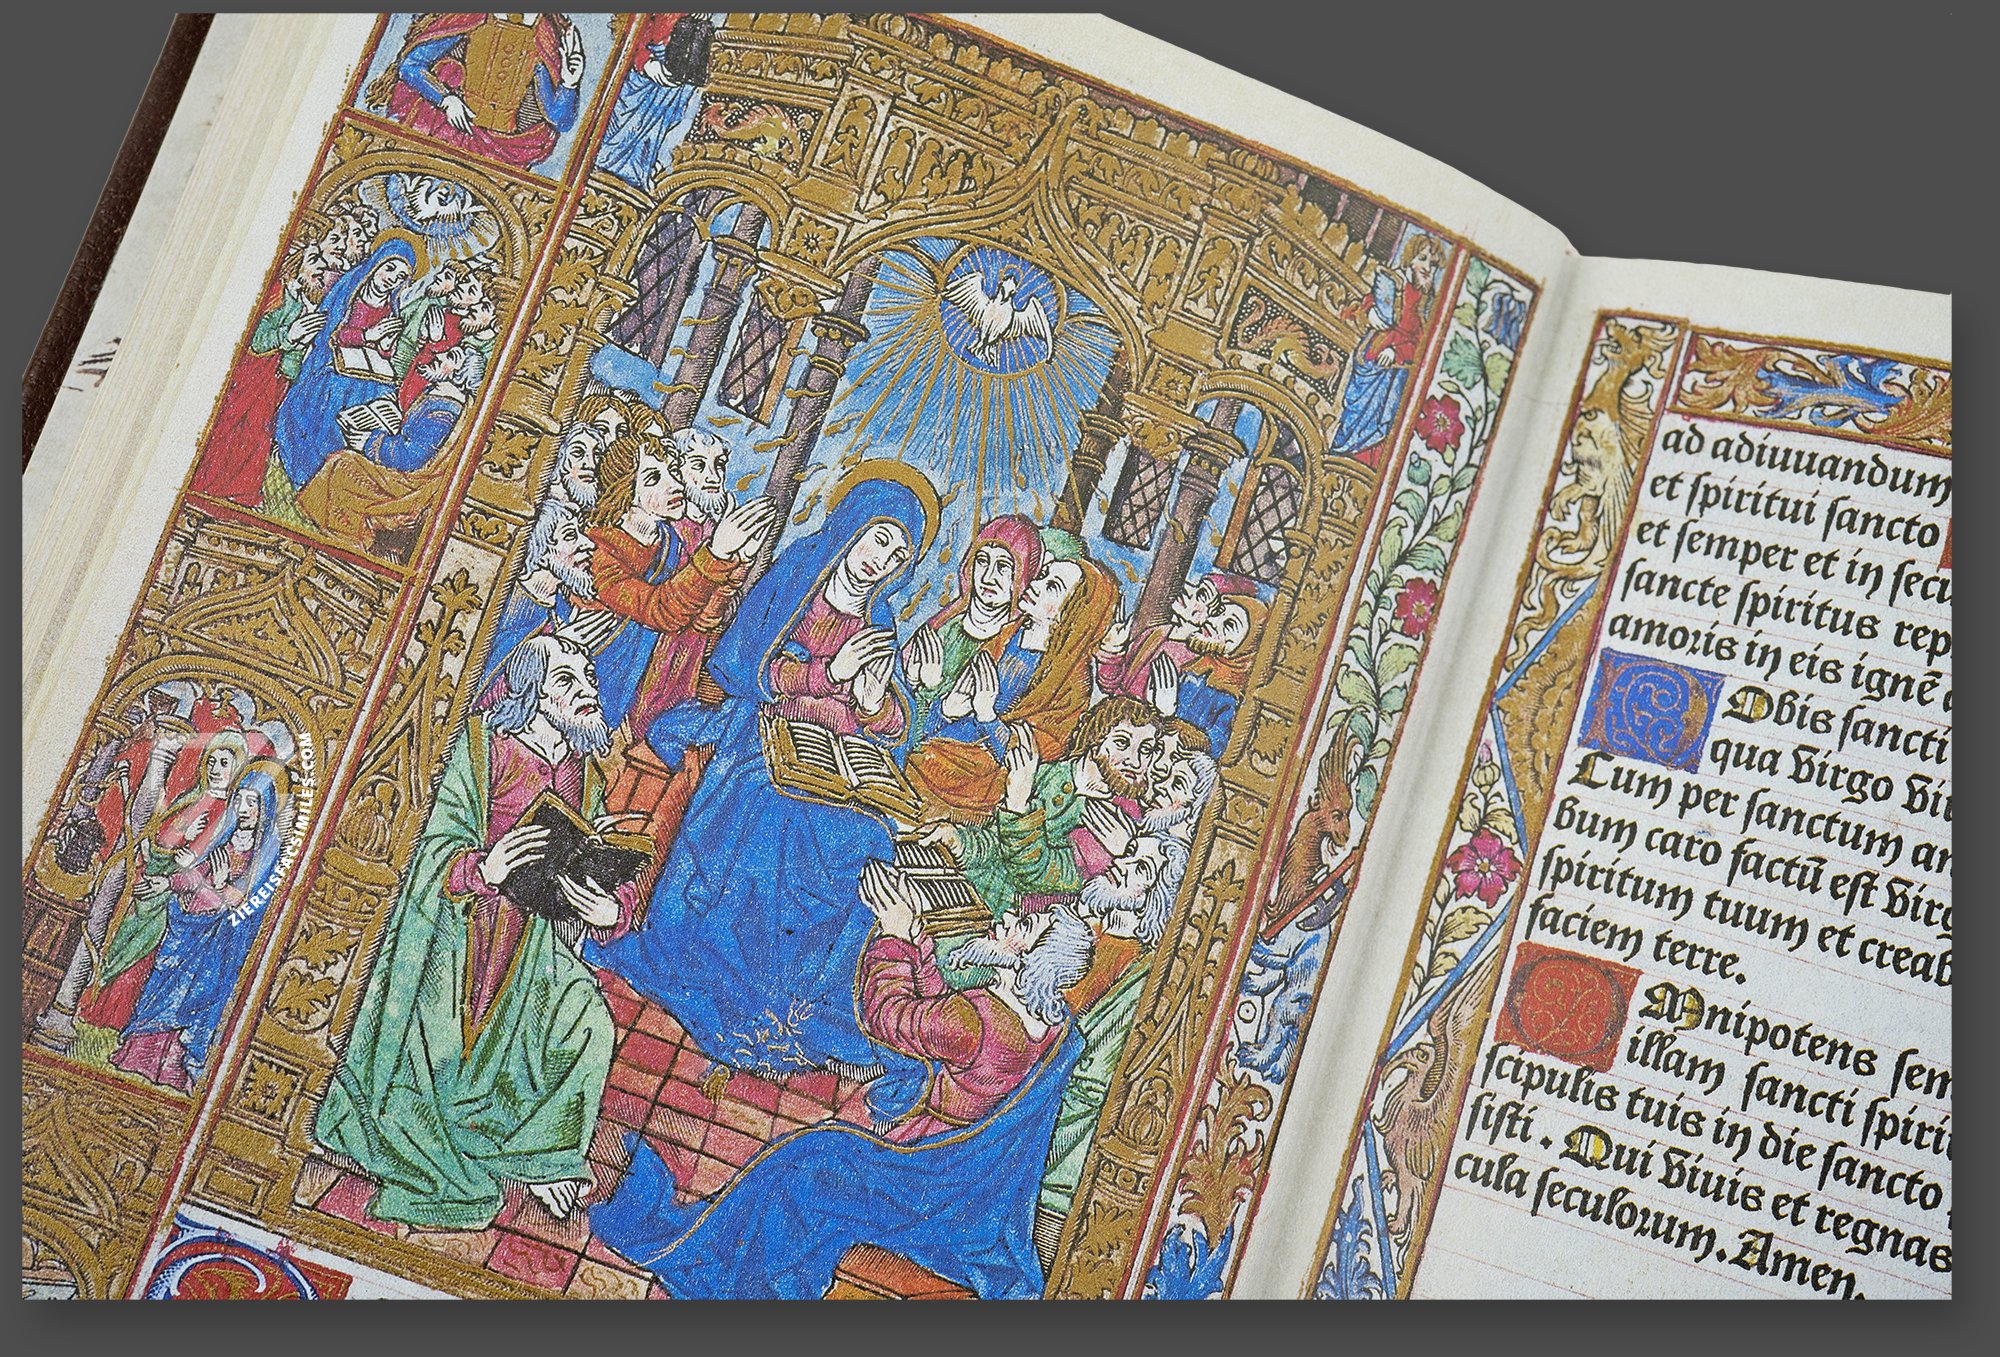 ad adiuuandum
et spiritui sancto
et semper et in secu
sancte spiritus rep
amoris in eis ignē
Obis sancti
qua virgo vir
Cum per sanctum an
bum caro factū est virg
spiritum tuum et creab
faciem terre.
Omnipotens sem
illam sancti spiri
scipulis tuis in die sancto
sisti. Qui viuis et regnas
cula seculorum. Amen.
ZIEREISFACSIMILES.COM